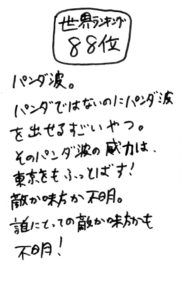 世界ランキング
88位
パンダ波。
パンダではないのにパンダ波
を出せるすごいやつ。
そのパンダ波の威力は、
東京をもふっとばす!
敵か味方か不明。
誰にとっての敵か味方かも
不明!